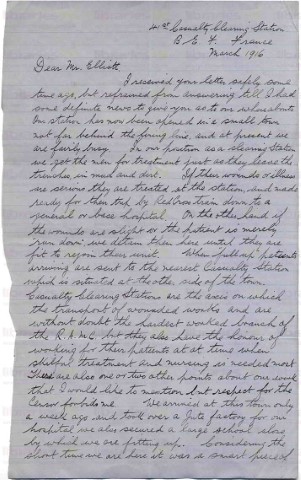 Casualty Clearing Station
B. E. F. France
March 1916
Dear Mr. Elliott,
I received your letter safely some
time ago, but refrained from answering till I had
some definite news to give you as to our whereabouts
Our station has now been opened in a small town
not far behind the firing line, and at present we
are fairly busy. In our position as a clearing station
we get the men for treatment just as they leave the
trenches, in mud and dirt. If their wounds or illness
are serious they are treated at the station, and made
ready for then by Red Cross train down to a
general or base hospital. On the other hand if
the wounds are slight or the patient is merely
run down we detain them here until they are
fit to rejoin their unit. When full up patients
arriving are sent to the nearest Casualty Station
which is situated at the other side of the town.
Casualty Clearing Stations are the axis on which
the transport of wounded works and are
without doubt the hardest worked branch of
the R.A.M.C. but they also have the honour of
working for their patients at a time when
skilful treatment and nursing is needed most.
There are also one or two other points about our work
that I would like to mention but respect for the
Censor forbids me. We arrived at this town only
a week ago and took over a Jute factory for our
hospital we also secured a large school close
by which we are fitting up. Considering the
short time we are here it was a smart piece of